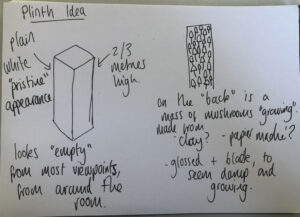 Plinth Idea
plain
white
"pristine"
appearance
2/3
metres
high.
looks "empty"
from most viewpoints,
from around the
room.
on the "back" is a
mass of mushrooms "growing"
made from
- clay? - paper mache?
- glossed + black, to
seem damp and
growing.